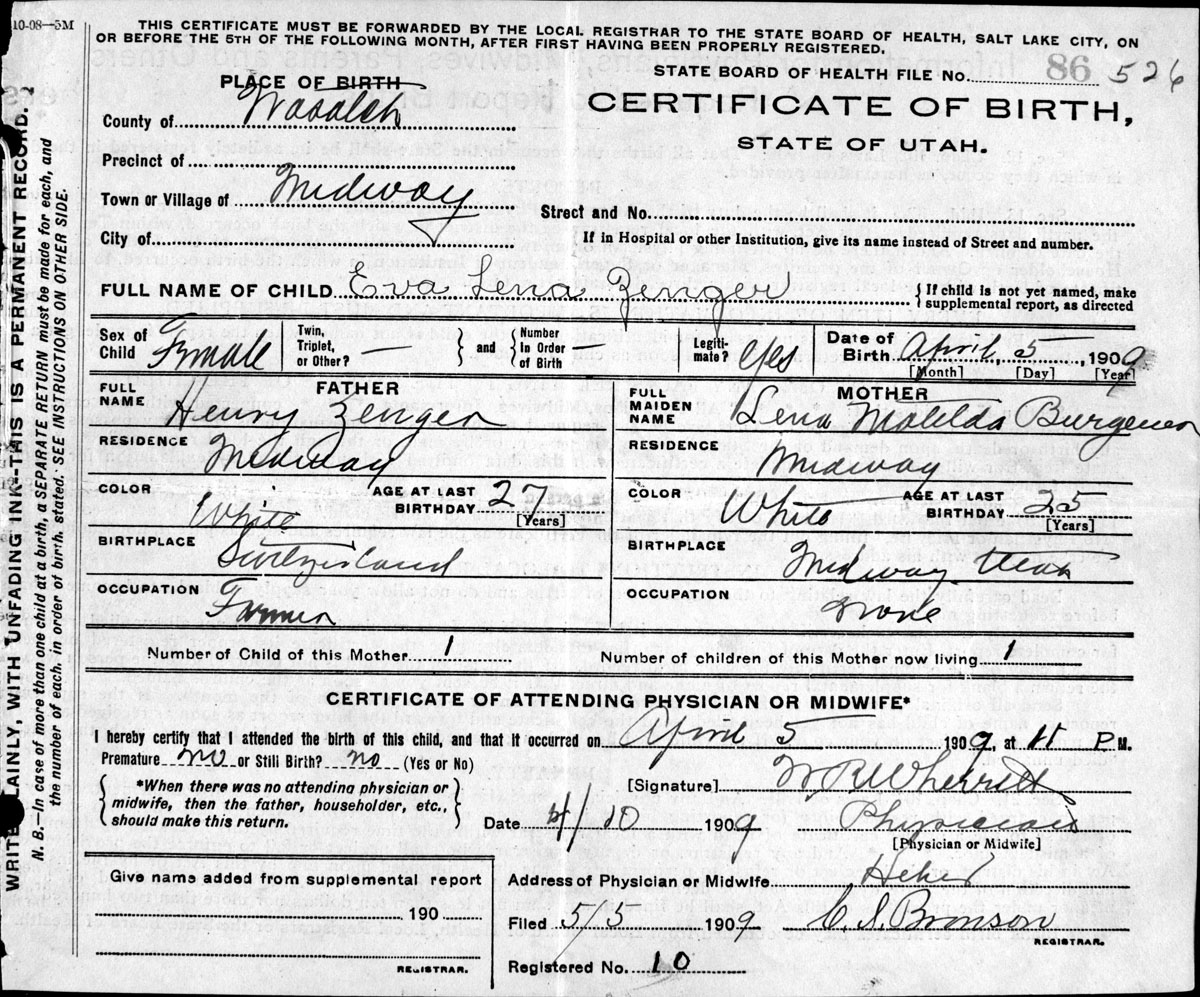 10-08—5M
THIS CERTIFICATE MUST BE FORWARDED BY THE LOCAL REGISTRAR TO THE STATE BOARD OF HEALTH, SALT LAKE CITY, ON
OR BEFORE THE 5TH OF THE FOLLOWING MONTH, AFTER FIRST HAVING BEEN PROPERLY REGISTERED.
PLACE OF BIRTH
STATE BOARD OF HEALTH FILE No. 86 526
County of Wasatch
CERTIFICATE OF BIRTH,
STATE OF UTAH.
Precinct of
Town or Village of Midway
Street and No.
City of
If in Hospital or other Institution, give its name instead of Street and number.
FULL NAME OF CHILD Eva Lena Zenger { If child is not yet named, make
supplemental report, as directed
Sex of Child Female Twin, Triplet, or Other? — } and { Number In Order of Birth Legiti-mate? yes Date of Birth April, 5, 1909
[Month] [Day] [Year]
FATHER
FULL NAME Henry Zenger
RESIDENCE Midway
COLOR White AGE AT LAST BIRTHDAY 27 [Years]
BIRTHPLACE Switzerland
OCCUPATION Farmer
MOTHER
FULL MAIDEN NAME Lena Matilda Burgener
RESIDENCE Midway
COLOR White AGE AT LAST BIRTHDAY 25 [Years]
BIRTHPLACE Midway Utah
OCCUPATION None
Number of Child of this Mother 1 Number of children of this Mother now living 1
CERTIFICATE OF ATTENDING PHYSICIAN OR MIDWIFE*
I hereby certify that I attended the birth of this child, and that it occurred on April 5 1909, at 11 P.M.
Premature no or Still Birth? no (Yes or No)
[Signature] W R Wherritt
{ *When there was no attending physician or
midwife, then the father, householder, etc.,
should make this return. }
Date 4/10 1909 Physician
[Physician or Midwife]
Give name added from supplemental report
190
REGISTRAR.
Address of Physician or Midwife Heber
Filed 5/5 1909 C. S. Bronson
REGISTRAR.
Registered No. 10
WRITE PLAINLY, WITH UNFADING INK--THIS IS A PERMANENT RECORD.
N. B.—In case of more than one child at a birth, a SEPARATE RETURN must be made for each, and
the number of each, in order of birth, stated. SEE INSTRUCTIONS ON OTHER SIDE.